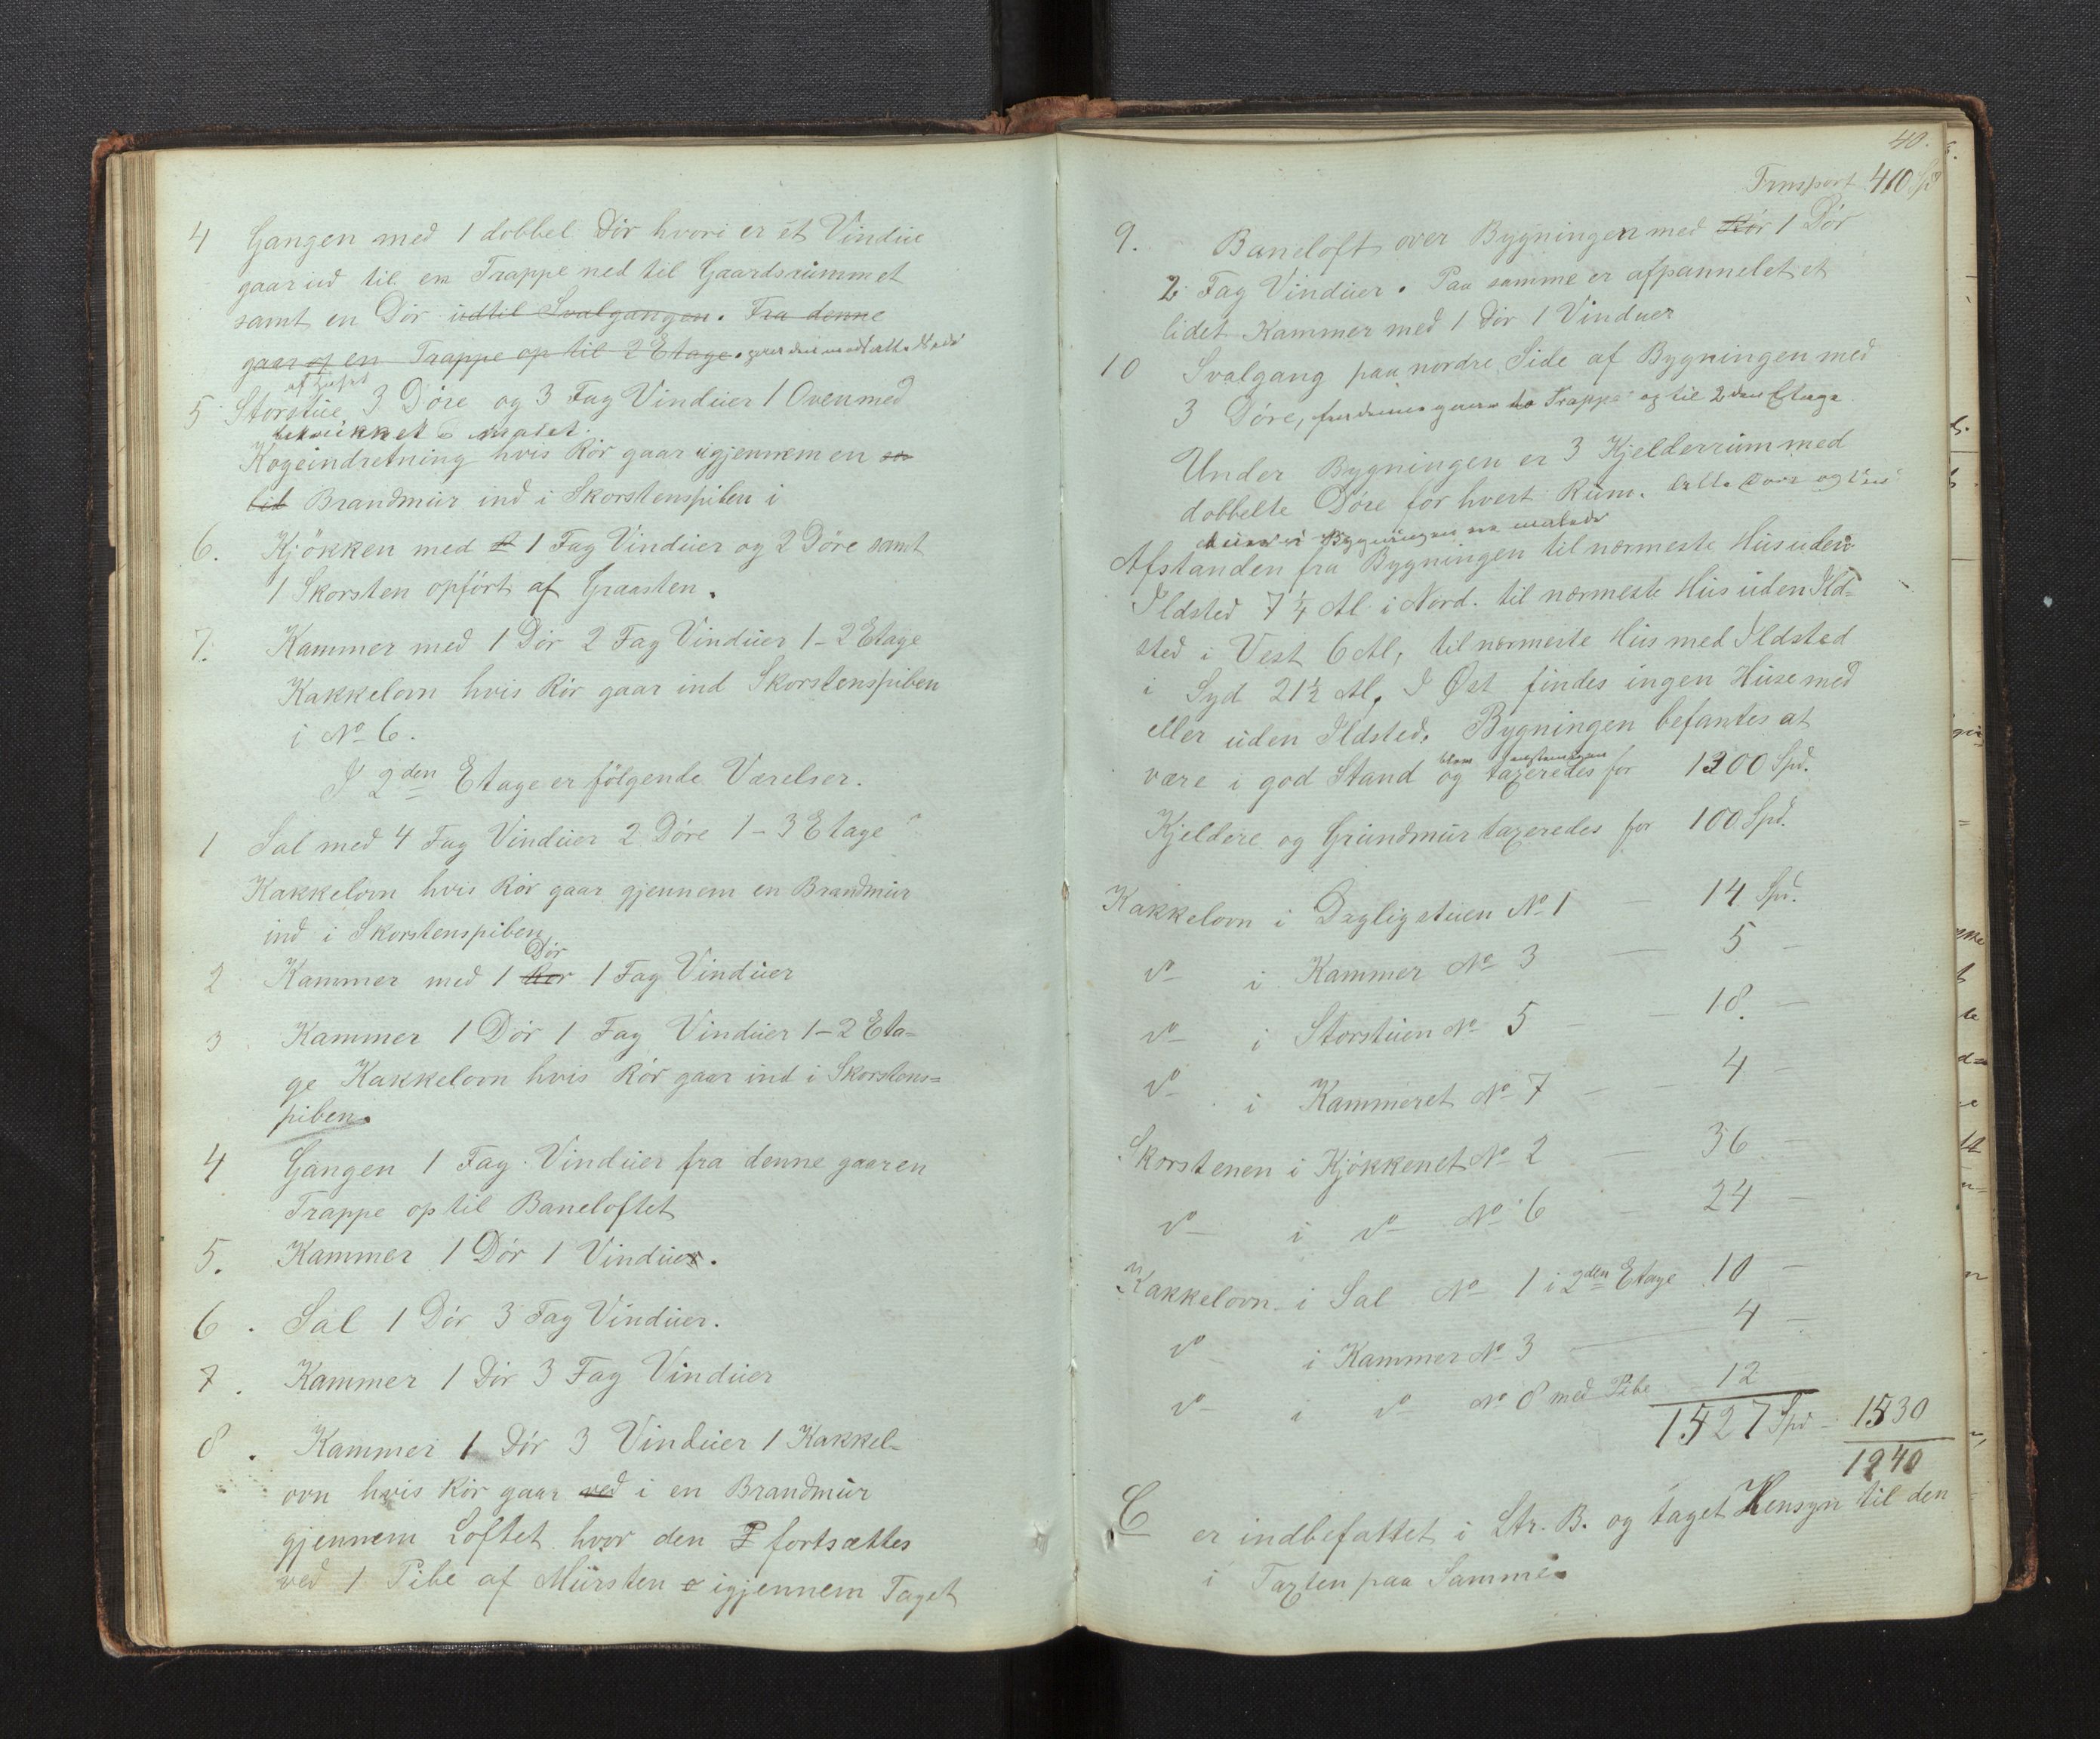 4 Gangen med 1 dobbel Dör hvori er et Vindue
gaar ud til en Trappe ned til Gaardsrummet
samt en Dör udtil Svalgangen. Fra denne
gaar og en Trappe op til 2 Etage.
5 Storstue 3 Döre og 3 Fag Vinduer 1 Oven med
betrukket o malet.
Kogeindretning hvis Rör gaar igjennem en en
lid Brandmur ind i Skorstenspiben i
6. Kjökken med 1 Fag Vinduer og 2 Döre samt
1 Skorsten opfört af Graasten.
7. Kammer med 1 Dör 2 Fag Vinduer 1-2 Etage
Kakkelovn hvis Rör gaar ind Skorstenspiben
i No 6.
I 2den Etage er fölgende Værelser.
1 Sal med 4 Fag Vinduer 2 Döre 1-3 Etage
Kakkelovn hvis Rör gaar gjennem en Brandmur
ind i Skorstenspiben
Dör
2 Kammer med 1 Rör 1 Fag Vinduer
3 Kammer 1 Dör 1 Fag Vinduer 1-2 Eta-
ge Kakkelovn hvis Rör gaar ind i Skorstens=
piben.
4 Gangen 1 Fag Vinduer fra denne gaar en
Trappe op til Baneloftet
5. Kammer 1 Dör 1 Vinduer.
6. Sal 1 Dör 3 Fag Vinduer.
7. Kammer 1 Dör 3 Fag Vinduer
8. Kammer 1 Dör 3 Vinduer 1 Kakkel-
ovn hvis Rör gaar ved i en Brandmur
gjennem Loftet hvor den P fortsættes
ved 1 Pibe af Mursten igjennem Taget
40.
Trnsport 410 Spd
9. Baneloft over Bygningen med Rör 1 Dör
2 Fag Vinduer. Paa samme er afpannelet et
lidet Kammer med 1 Dör 1 Vinduer
10 Svalgang paa nordre Side af Bygningen med
3 Döre, fra denne gaar to Trappe op til 2den Etage
Under Bygningen er 3 Kjelderrum med
dobbelte Döre for hvert Rum.
duer i Bygningen er malede
Afstanden fra Bygningen til nærmeste Hus uden
Ildsted 7 1/4 Al i Nord. til nærmeste Hus uden Ild-
sted i Vest 6 Al, til nærmeste Hus med Ildsted
i Syd 21 1/2 Al, I Öst findes ingen Huse med
eller uden Ildsted. Bygningen befantes at
være i god Stand og taxeredes for 1300 Spd.
Kjeldere og Grundmur taxeredes for 100 Spd.
Kakkelovn i Dagligstuen No 1 — 14 Spd.
do i Kammer No 3 — 5 —
do i Storstuen No 5 — 18. —
do i Kammeret No 7 — 4 —
Skorstenen i Kjökkenet No 2 — 36 —
do i do No 6 — 24 —
Kakkelovn i Sal No 1 i 2den Etage 10 —
do i Kammer No 3 — 4 —
do i do No 8 med Pibe 12
1527 Spd - 1530
1940
C er indbefattet i Ltr. B. og taget Hensyn til den
i Taxten paa Samme.